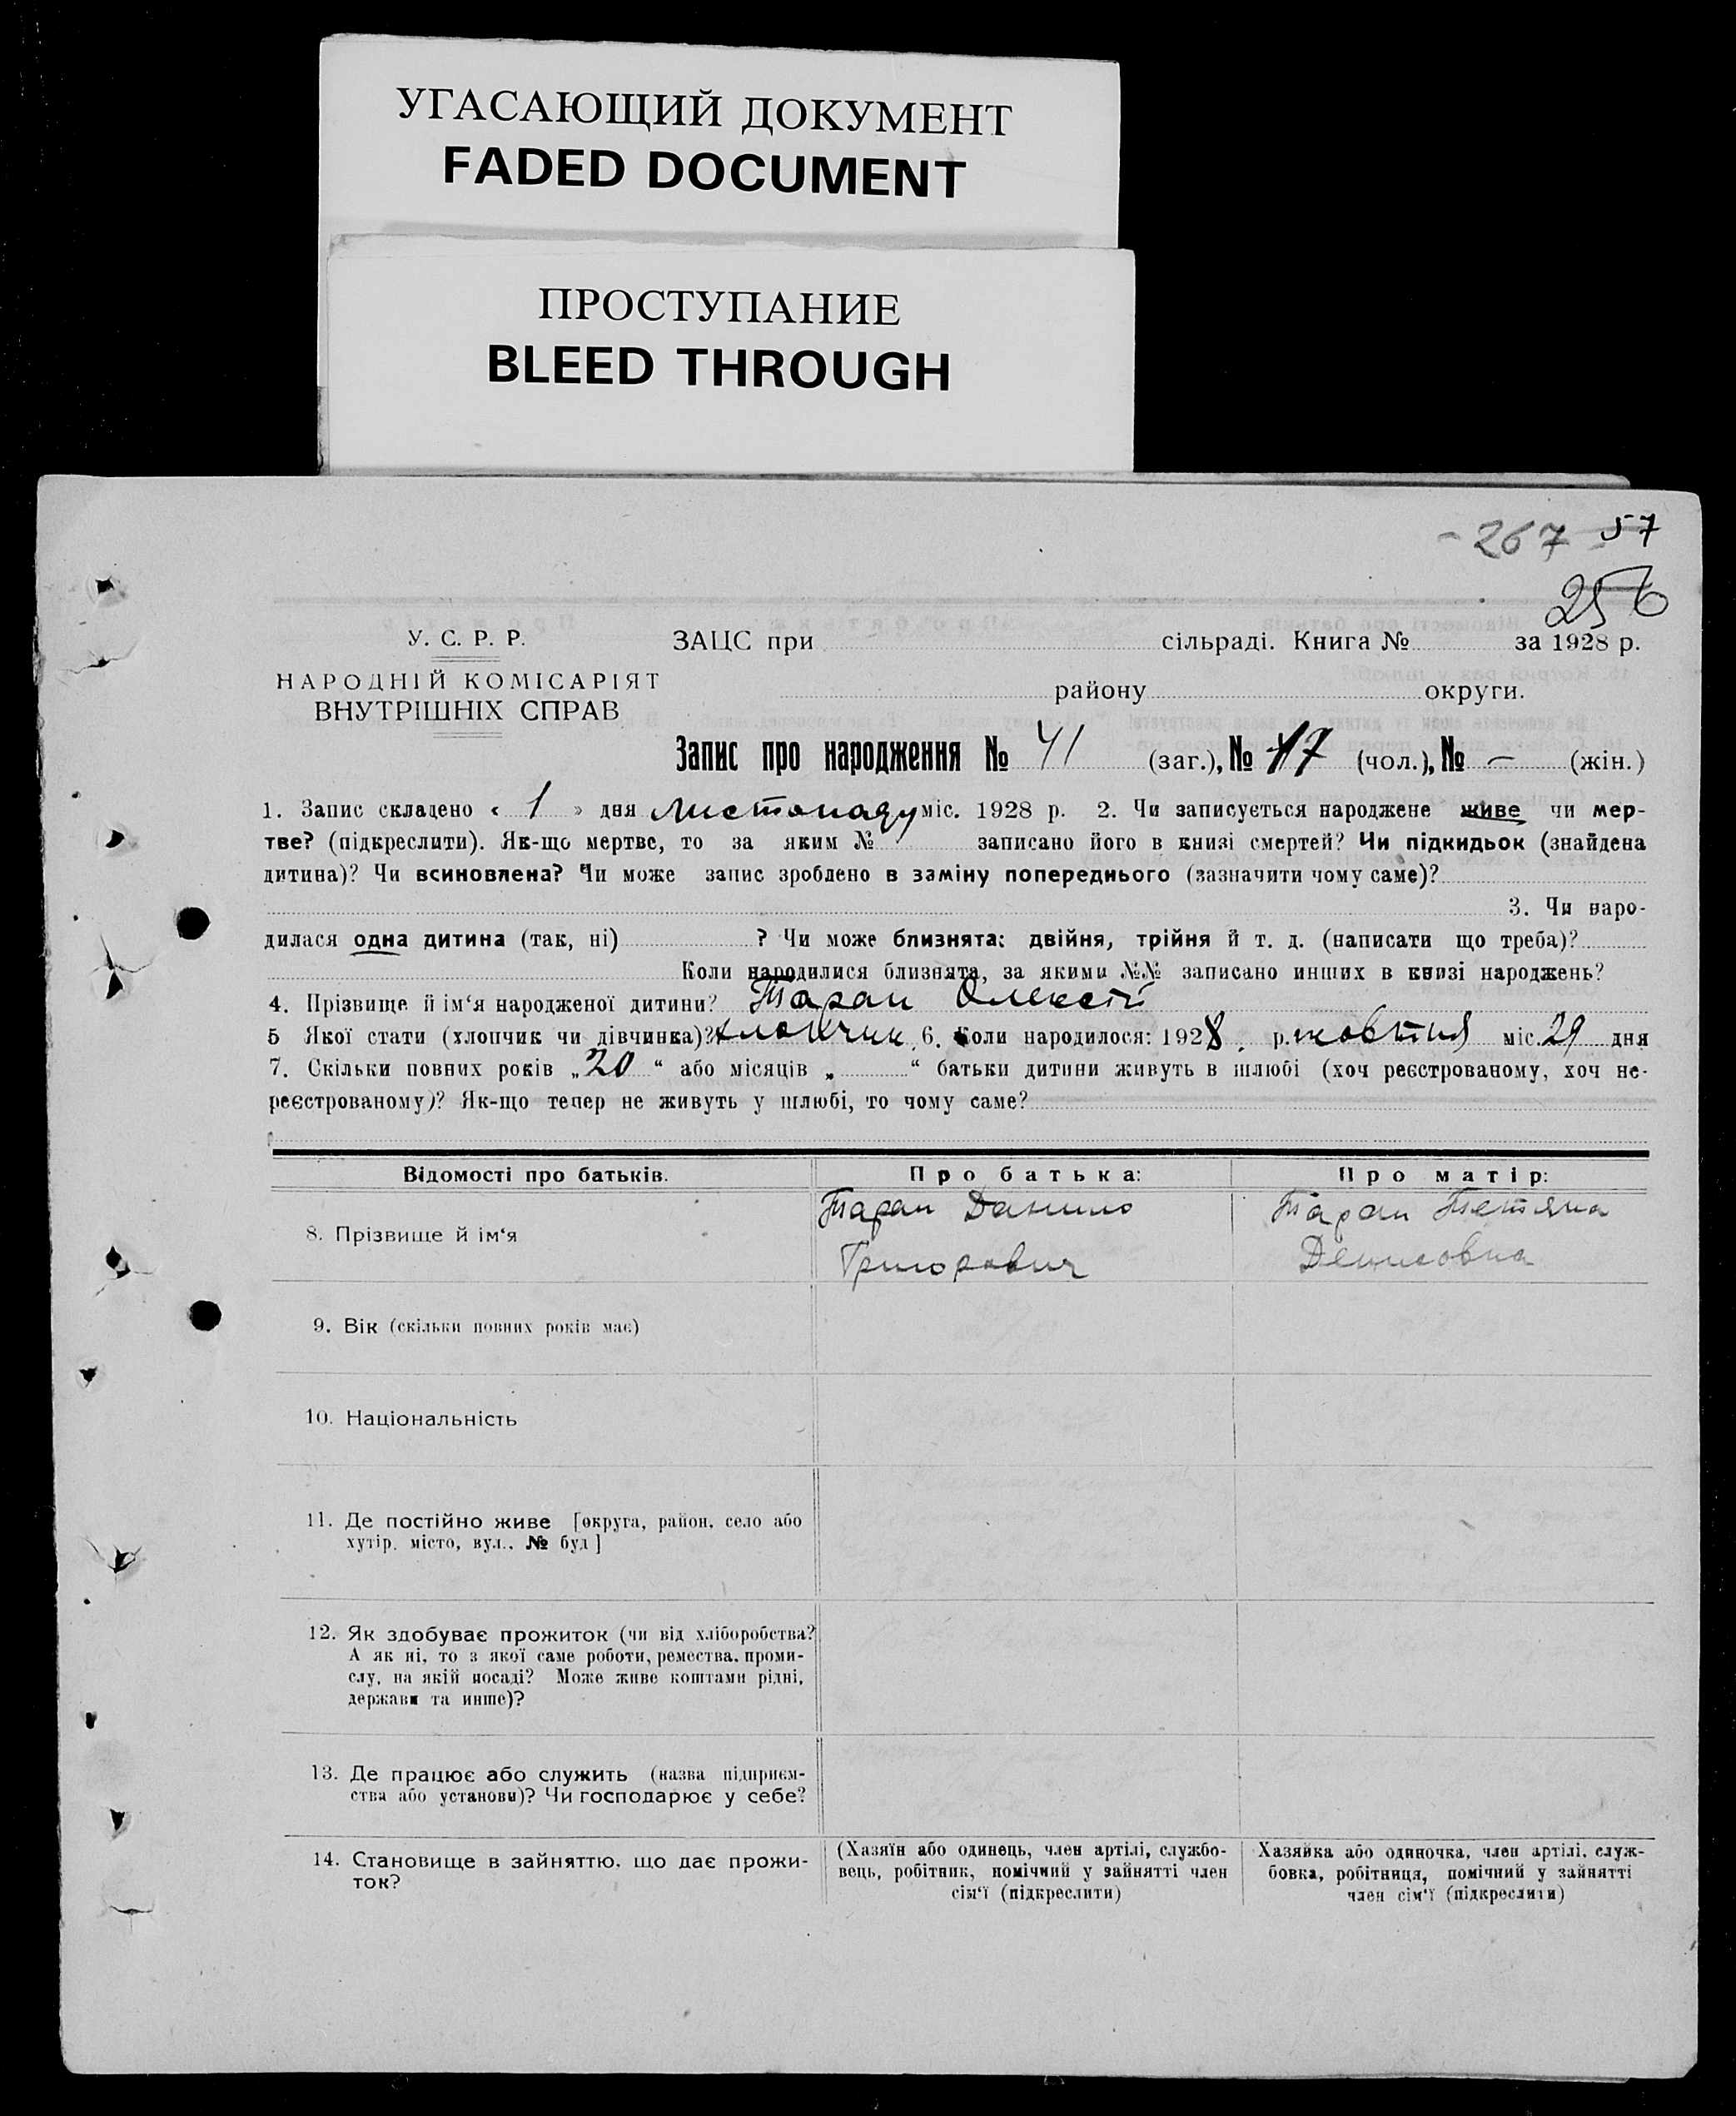 УГАСАЮЩИЙ ДОКУМЕНТ
FADED DOCUMENT
ПРОСТУПАНИЕ
BLEED THROUGH
267 57
256
У. С. Р. Р.
НАРОДНІЙ КОМІСАРІЯТ
ВНУТРІШНІХ СПРАВ
ЗАЦС при сільраді. Книга № за 1928 р.
району округи.
Запис про народження № 41 (заг.), № 17 (чол.), № — (жін.)
1. Запис складено « 1 » дня листопаду міс. 1928 р. 2. Чи записується народжене живе чи мер-
тве? (підкреслити). Як-що мертве, то за яким № записано його в книзі смертей? Чи підкидьок (знайдена
дитина)? Чи всиновлена? Чи може запис зроблено в заміну попереднього (зазначити чому саме)?
3. Чи наро-
дилася одна дитина (так, ні) ? Чи може близнята: двійня, трійня й т. д. (написати що треба)?
Коли народилися близнята, за якими №№ записано инших в книзі народжень?
4. Прізвище й ім‘я народженої дитини? Таран Олексій
5 Якої стати (хлопчик чи дівчинка)? хлопчик 6. Коли народилося: 1928 р. жовтня міс. 29 дня
7. Скільки повних років „ 20 “ або місяців „ “ батьки дитини живуть в шлюбі (хоч реєстрованому, хоч не-
реєстрованому)? Як-що тепер не живуть у шлюбі, то чому саме?
Відомості про батьків. Про батька: Про матір:
8. Прізвище й ім‘я Таран Данило Таран Тетяна
Григорович Денисовна
9. Вік (скільки повних років має)
10. Національність
11. Де постійно живе [округа, район, село або
хутір, місто, вул., № буд]
12. Як здобуває прожиток (чи від хліборобства?
А як ні, то з якої саме роботи, ремества, проми-
слу, на якій посаді? Може живе коштами рідні,
держави та инше)?
13. Де працює або служить (назва підприєм-
ства або установи)? Чи господарює у себе?
14. Становище в зайняттю, що дає прожи-
ток?
(Хазяїн або одинець, член артілі, службо-
вець, робітник, помічний у зайнятті член
сім‘ї (підкреслити)
Хазяйка або одиночка, член артілі, служ-
бовка, робітниця, помічний у зайнятті
член сім‘ї (підкреслити)